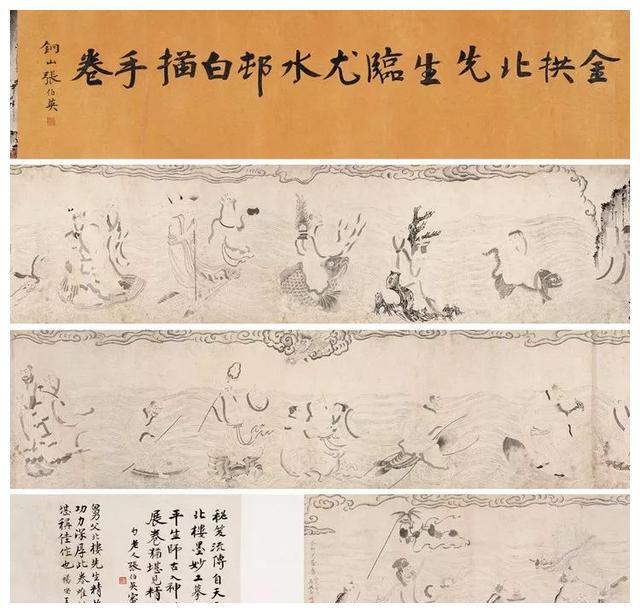 金拱北先生臨尤水邨白描手卷
銅山張伯英
秘笈流傳自天
北樓墨妙工摹
平生師古入神
展卷猶堪見精
勺老人張伯英
舅父北樓先生精
功力深厚此卷雖
堪稱佳作也